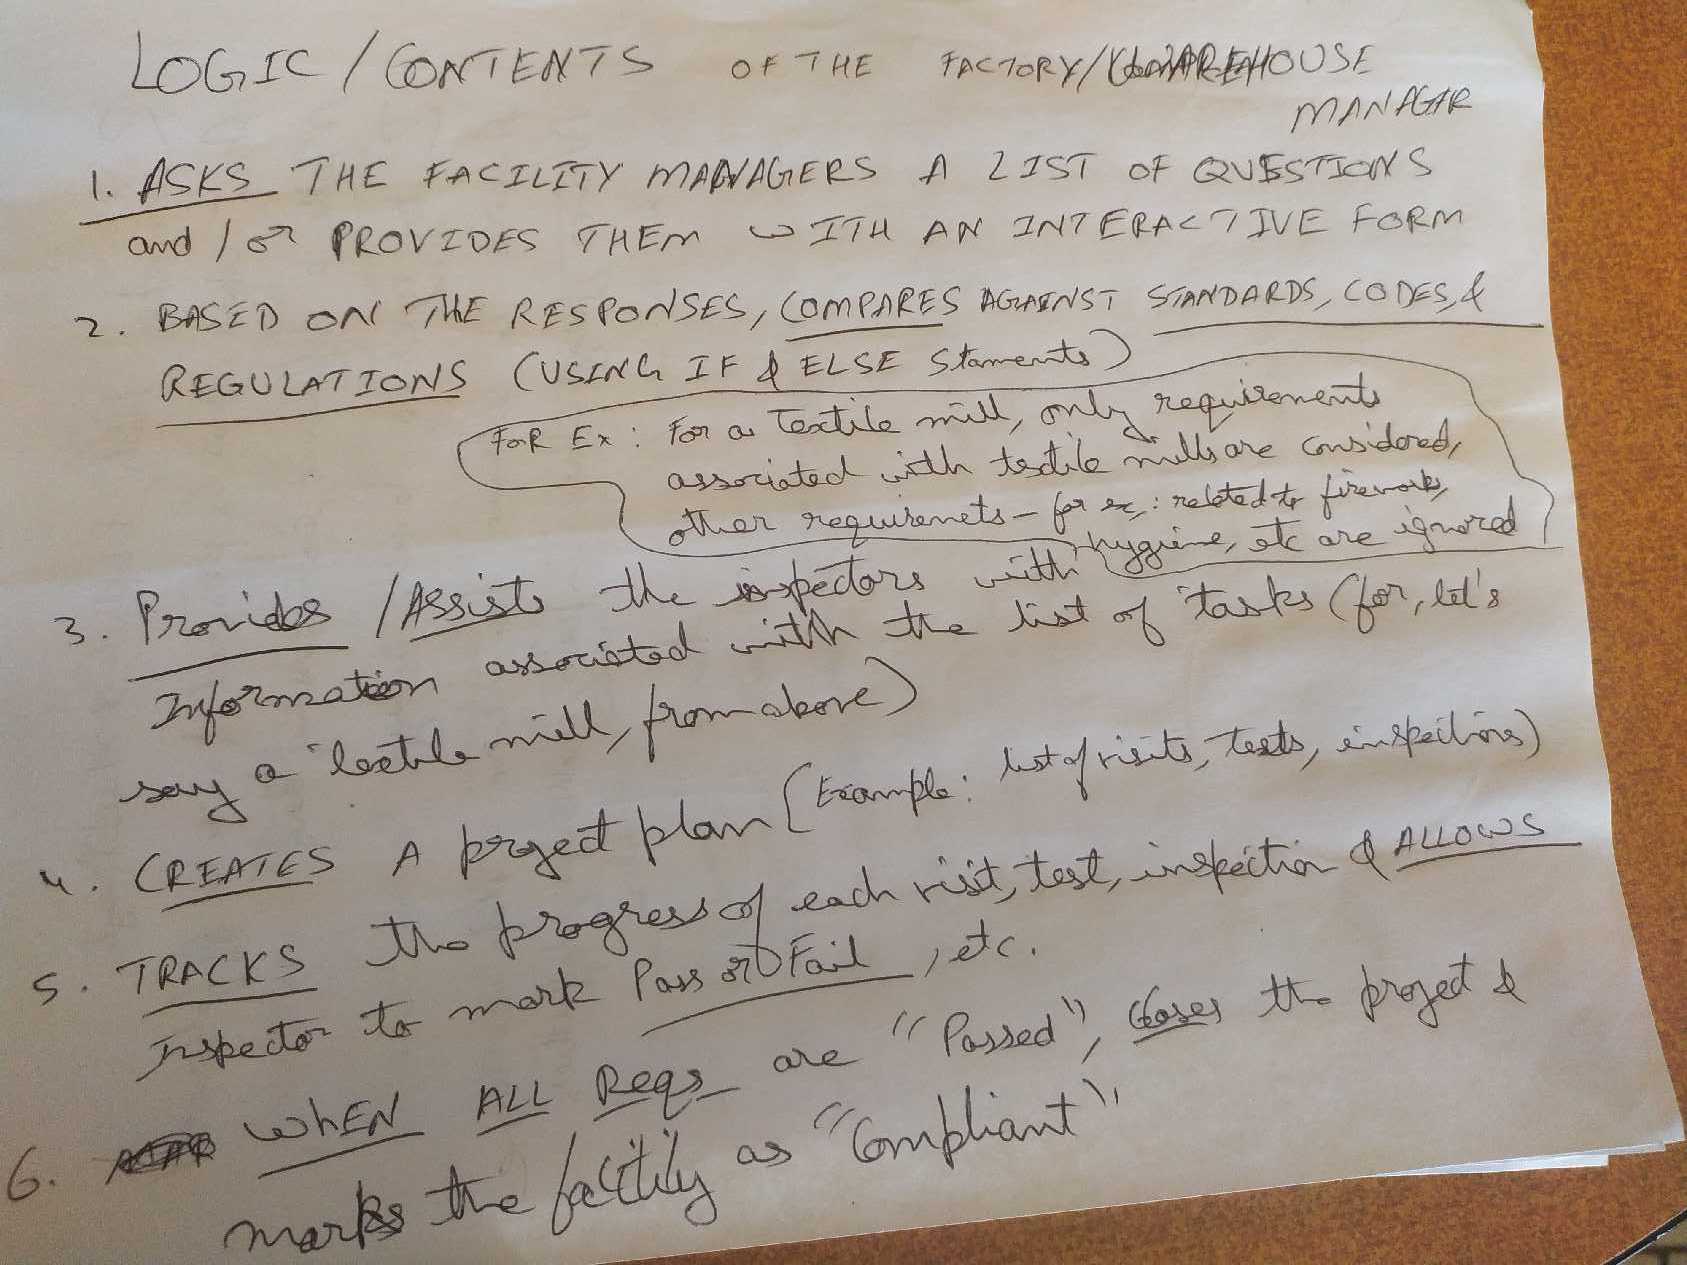 LOGIC / CONTENTS OF THE FACTORY/WAREHOUSE
MANAGER
1. ASKS THE FACILITY MANAGERS A LIST OF QUESTIONS
and / or PROVIDES THEM WITH AN INTERACTIVE FORM
2. BASED ON THE RESPONSES, COMPARES AGAINST STANDARDS, CODES, &
REGULATIONS (USING IF & ELSE Staments)
FOR Ex: For a Textile mill, only requirements
associated with textile mills are considered,
other requiremets - for ex,: related to firework,
hygiene, etc are ignored
3. Provides / Assists the inspectors with
Information associated with the list of tasks (for, let's
say a textile mill, from above)
4. CREATES A project plan (Example: list of visits, tests, inspections)
5. TRACKS the progress of each visit, test, inspection & ALLOWS
Inspector to mark Pass or Fail, etc.
6. WHEN ALL Reqs are "Passed", closes the project &
marks the facility as "Compliant"